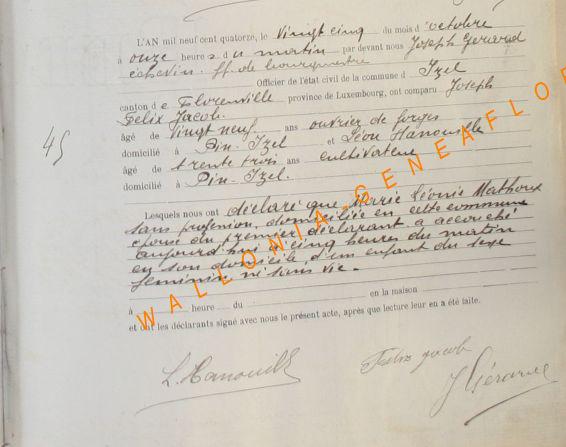 L'AN mil neuf cent quatorze, le vingt cinq du mois d'octobre
à onze heures du matin par devant nous Joseph Gerard
échevin ff. de bourgmestre
Officier de l'état civil de la commune d'Izel
canton de Florenville province de Luxembourg, ont comparu Joseph
Felix Jacob
âgé de vingt neuf ans ouvrier de forges
domicilié à Pin-Izel et Léon Hanouille
âgé de trente trois ans cultivateur
domicilié à Pin-Izel.
45
Lesquels nous ont déclaré que Marie Léonie Mathoux
sans profession, domiciliée en cette commune
épouse du premier déclarant a accouché
aujourd'hui à cinq heures du matin
en son domicile, d'un enfant du sexe
féminin né sans vie.
à heure du en la maison
et ont les déclarants signé avec nous le présent acte, après que lecture leur en a été faite.
L. Hanouille
Felix Jacob
J Gérard
WALLONIA-GENEAFLO